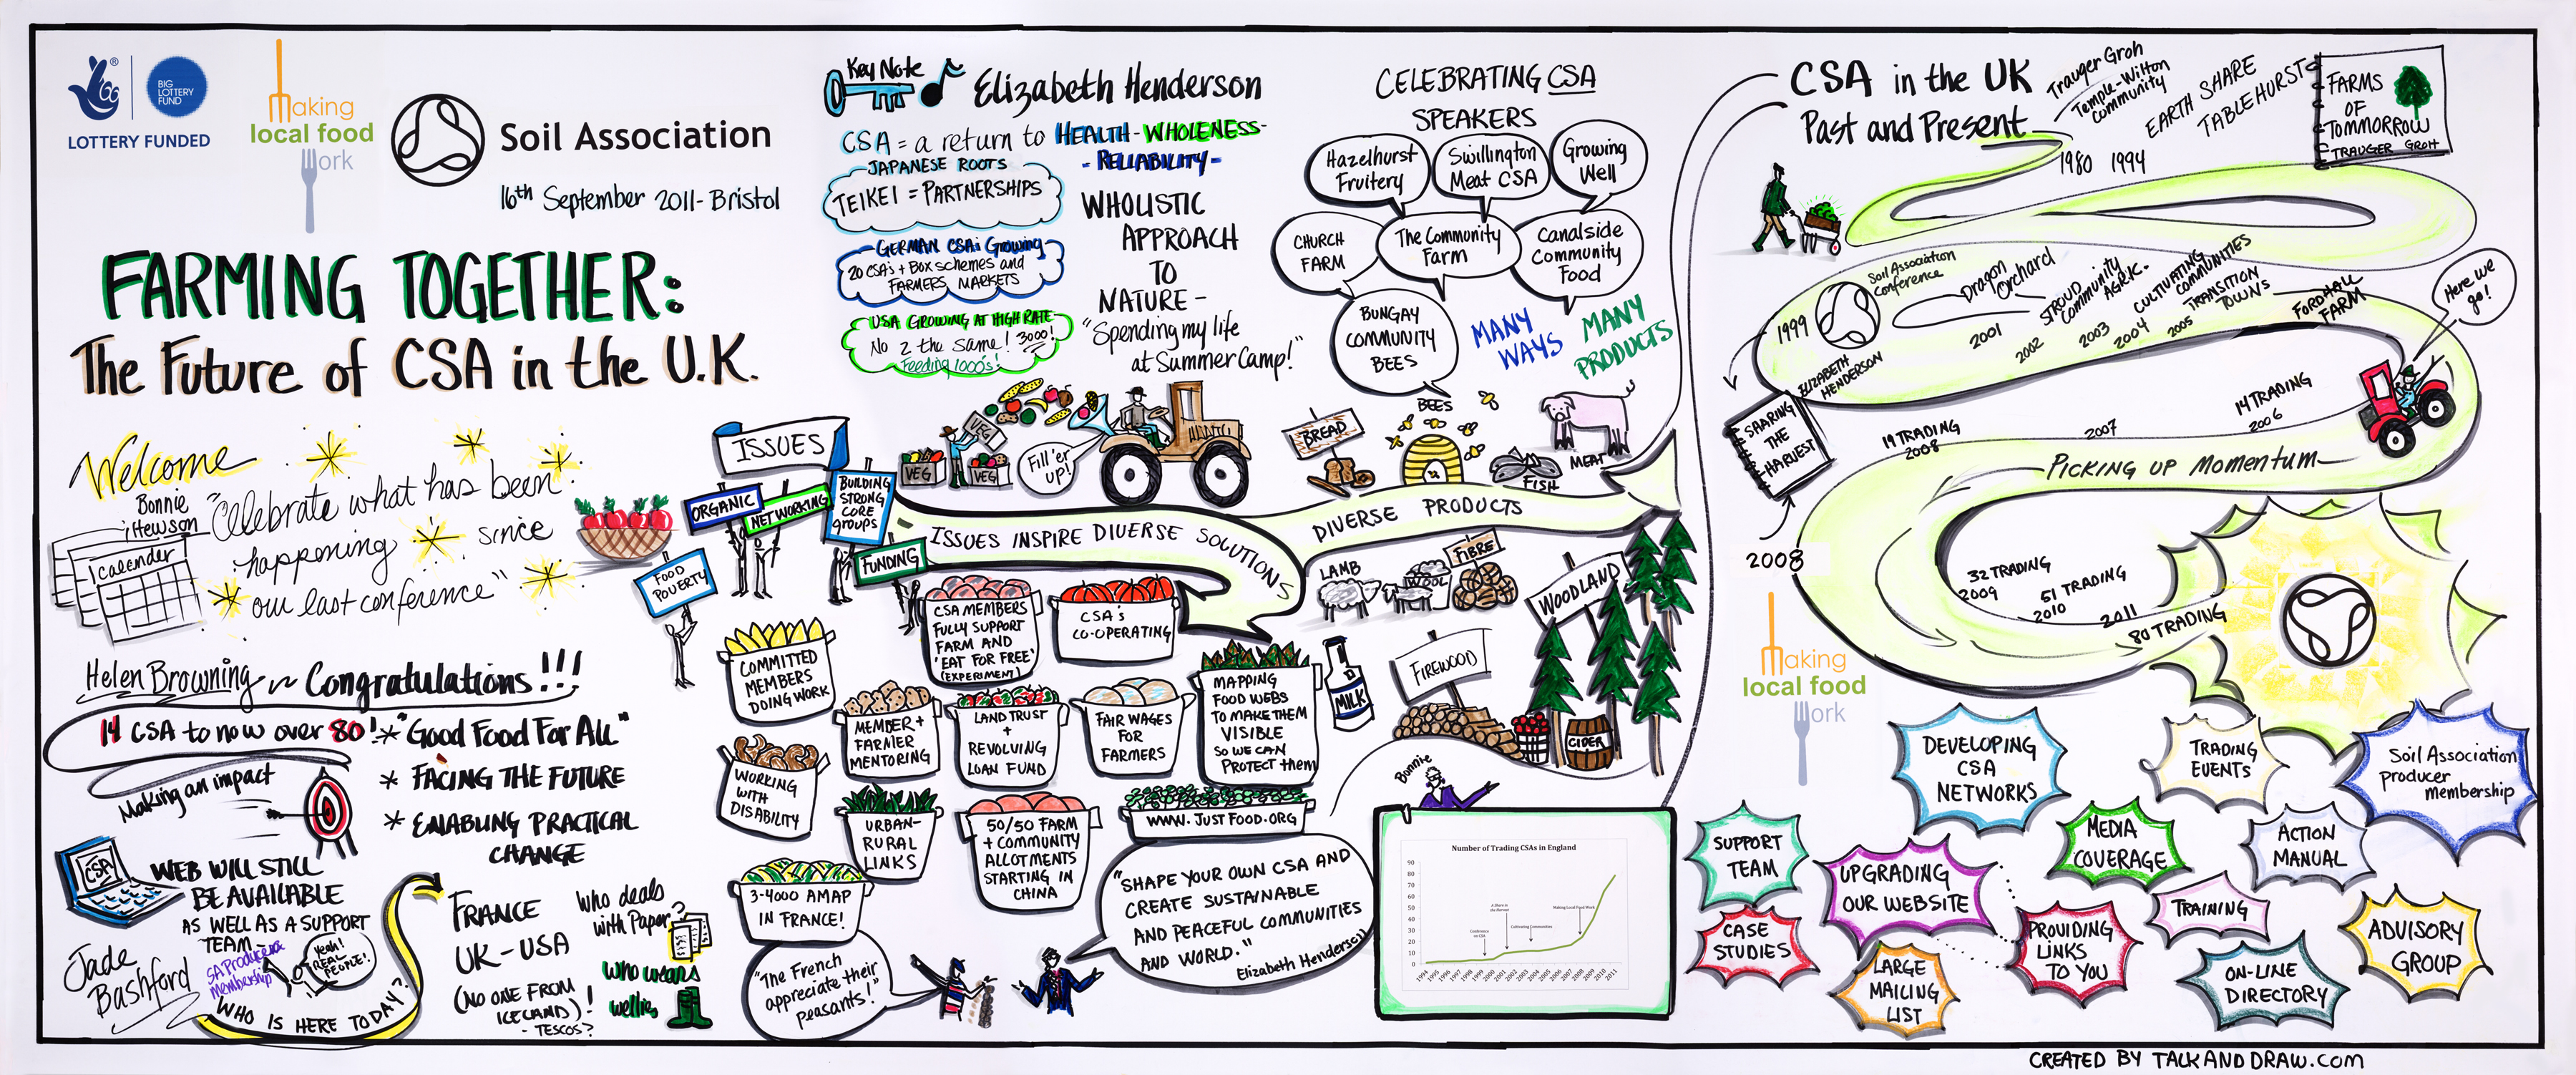 LOTTERY FUNDED
BIG
LOTTERY
FUND
making
local food
work
Soil Association
16th September 2011 - Bristol
FARMING TOGETHER:
The Future of CSA in the U.K.
Welcome
Bonnie
Hewson
calendar
"Celebrate what has been
happening since
our last conference"
Helen Browning ~ Congratulations!!!
14 CSA to now over 80!
* "Good Food For All"
* FACING THE FUTURE
* ENABLING PRACTICAL
CHANGE
Making an impact
CSA
WEB WILL STILL
BE AVAILABLE
AS WELL AS A SUPPORT
TEAM -
SA Producer
membership
Yeah!
REAL
PEOPLE!
Jade
Bashford
WHO IS HERE TODAY?
FRANCE
UK - USA
(NO ONE FROM
ICELAND)!
- TESCOS?
Who deals
with Paper?
who wears
wellies
Key Note
Elizabeth Henderson
CSA = a return to HEALTH - WHOLENESS -
- RELIABILITY -
JAPANESE ROOTS
TEIKEI = PARTNERSHIPS
GERMAN CSA's Growing
20 CSA's + Box schemes and
FARMERS MARKETS
USA GROWING AT HIGH RATE
No 2 the same! 3000!
Feeding 1000's!
WHOLISTIC
APPROACH
TO
NATURE -
"Spending my life
at Summer Camp!"
CELEBRATING CSA
SPEAKERS
Hazelhurst
Fruitery
Swillington
Meat CSA
Growing
Well
CHURCH
FARM
The Community
Farm
Canalside
Community
Food
BUNGAY
COMMUNITY
BEES
MANY
WAYS
MANY
PRODUCTS
VEG
VEG
VEG
Fill 'er
up!
BREAD
BEES
FISH
MEAT
ISSUES
ORGANIC
NETWORKING
BUILDING
STRONG
CORE
GROUPS
FUNDING
FOOD
POVERTY
ISSUES INSPIRE DIVERSE SOLUTIONS
DIVERSE PRODUCTS
LAMB
WOOL
FIBRE
WOODLAND
FIREWOOD
MILK
CIDER
COMMITTED
MEMBERS
DOING WORK
CSA MEMBERS
FULLY SUPPORT
FARM AND
'EAT FOR FREE'
(EXPERIMENT)
CSA's
CO-OPERATING
MEMBER +
FARMER
MENTORING
LAND TRUST
+
REVOLVING
LOAN FUND
FAIR WAGES
FOR
FARMERS
MAPPING
FOOD WEBS
TO MAKE THEM
VISIBLE
SO WE CAN
PROTECT them
WORKING
WITH
DISABILITY
URBAN-
RURAL
LINKS
50/50 FARM
+ COMMUNITY
ALLOTMENTS
STARTING IN
CHINA
WWW.JUSTFOOD.ORG
3-4000 AMAP
IN FRANCE!
"The French
appreciate their
peasants!"
"SHAPE YOUR OWN CSA AND
CREATE SUSTAINABLE
AND PEACEFUL COMMUNITIES
AND WORLD."
Elizabeth Henderson
Bonnie
Number of Trading CSAs in England
90
80
70
60
50
40
30
20
10
0
Conference
on CSA
A Share in
the Harvest
Cultivating Communities
Making Local Food Work
1994 1995 1996 1997 1998 1999 2000 2001 2002 2003 2004 2005 2006 2007 2008 2009 2010 2011
CSA in the UK
Past and Present
Trauger Groh
Temple-Wilton
Community
EARTH SHARE
TABLEHURST
1980 1994
FARMS
OF
TOMMORROW
TRAUGER GROH
1999
Soil Association
Conference
ELIZABETH
HENDERSON
Dragon
Orchard
2001
STROUD
Community
AGRIC.
2002
2003
CULTIVATING
COMMUNITIES
2004
TRANSITION
TOWNS
2005
FORDHALL
FARM
Here we
go!
14 TRADING
2006
2007
19 TRADING
2008
PICKING UP MOMENTUM
SHARING
THE
HARVEST
2008
32 TRADING
2009
51 TRADING
2010
2011
80 TRADING
making
local food
work
DEVELOPING
CSA
NETWORKS
TRADING
EVENTS
Soil Association
producer
membership
SUPPORT
TEAM
MEDIA
COVERAGE
ACTION
MANUAL
UPGRADING
OUR WEBSITE
TRAINING
CASE
STUDIES
PROVIDING
LINKS
TO YOU
ADVISORY
GROUP
LARGE
MAILING
LIST
ON-LINE
DIRECTORY
CREATED BY TALKANDDRAW.COM